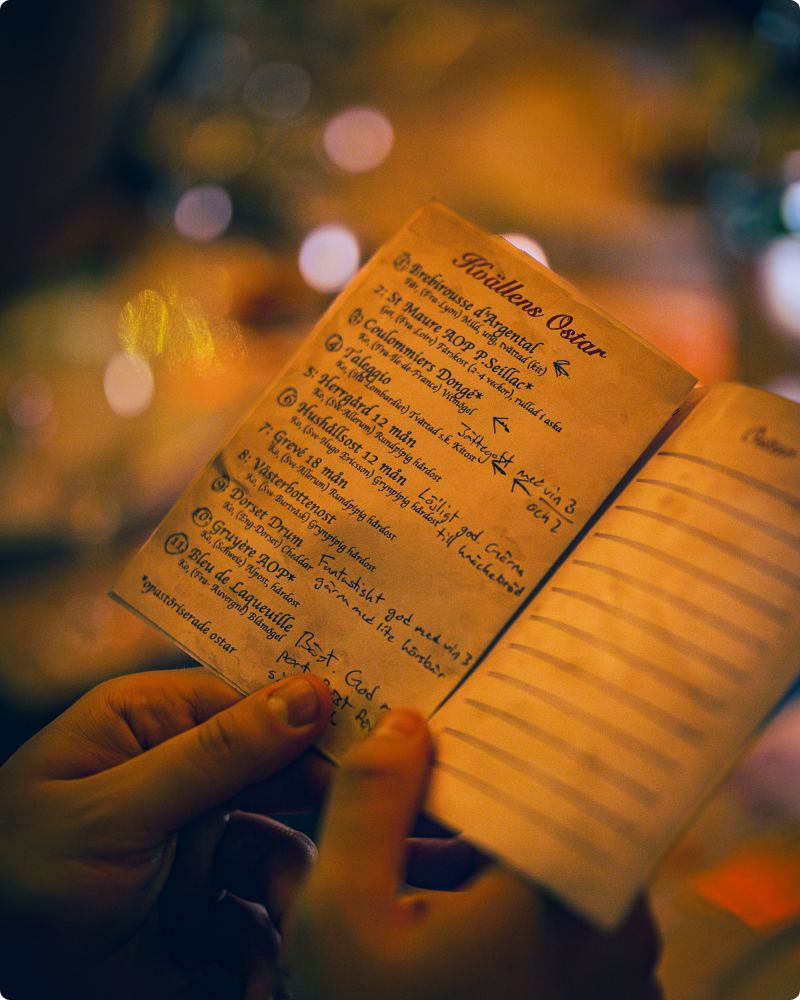 Kvällens Ostar
1: Brebirousse d'Argental
Får, (Fra-Lyon) Mild, ung, tvättad (kit)
2: St Maure AOP P.Seillac*
Get, (Fra-Loire) Färskost (2-4 veckor), rullad i aska
3: Coulommiers Dongé*
Ko, (Fra-Ile de-France) Vitmögel
4: Taleggio
Ko, (Ita Lombardiet) Tvättad s.k. Kitost
Jättegott med vin 3
och 2
5: Herrgård 12 mån
Ko, (Sve-Allerum) Rundpipig hårdost
6: Hushållsost 12 mån
Ko, (Sve-Hugo Ericson) Grynpipig hårdost
Löjligt god. Gärna
till knäckebröd
7: Grevé 18 mån
Ko, (Sve-Allerum) Rundpipig hårdost
8: Västerbottenost
Ko, (Sve-Burträsk) Grynpipig hårdost
9: Dorset Drum
Ko, (Eng-Dorset) Cheddar
Fantastiskt god med vin 3
gärna med lite
10: Gruyère AOP*
Ko, (Schweiz) Alpost, hårdost
11: Bleu de Laqueuille
Ko, (Fra- Auvergne) Blåmögel
Bäst. God
*opastöriserade ostar